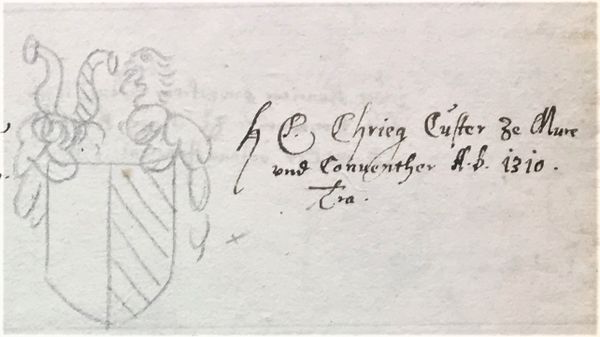 H C. Chrieg Custer Ze Mure
und Conventher A.b. 1310.
Tra.